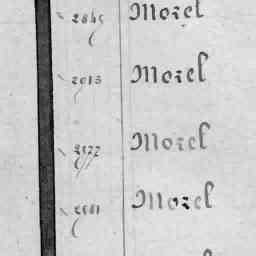 2845 Morel
2013 Morel
2177 Morel
2681 Morel